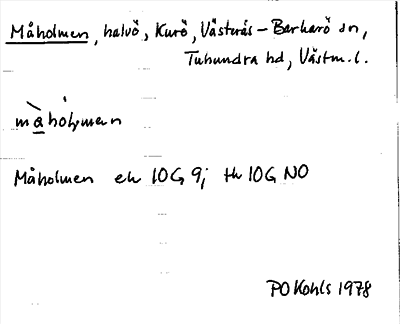 Måholmen, halvö, Kurö, Västerås-Barkarö sn,
Tuhundra hd, Västm. l.
måhòl̥man
Måholmen ek 10G 9j th 10G NO
PO Kohls 1978